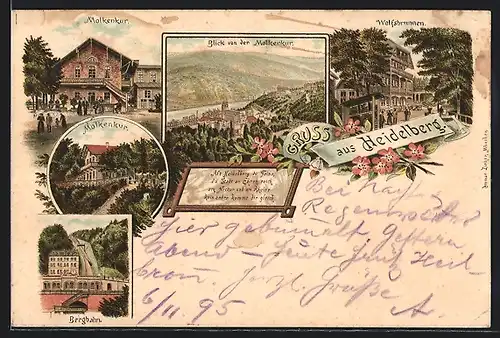 Molkenkur.
Blick von der Molkenkur.
Wolfsbrunnen.
Molkenkur.
GRUSS
aus Heidelberg.
Alt Heidelberg du Feine,
Du Stadt an Ehren reich,
am Neckar und am Rheine
Kein' andre kommt dir gleich.
Bergbahn.
Bei
Regenwetter
hier gestern
abend – heute Heil
bronn. Herzl. Grüße
6/11 95